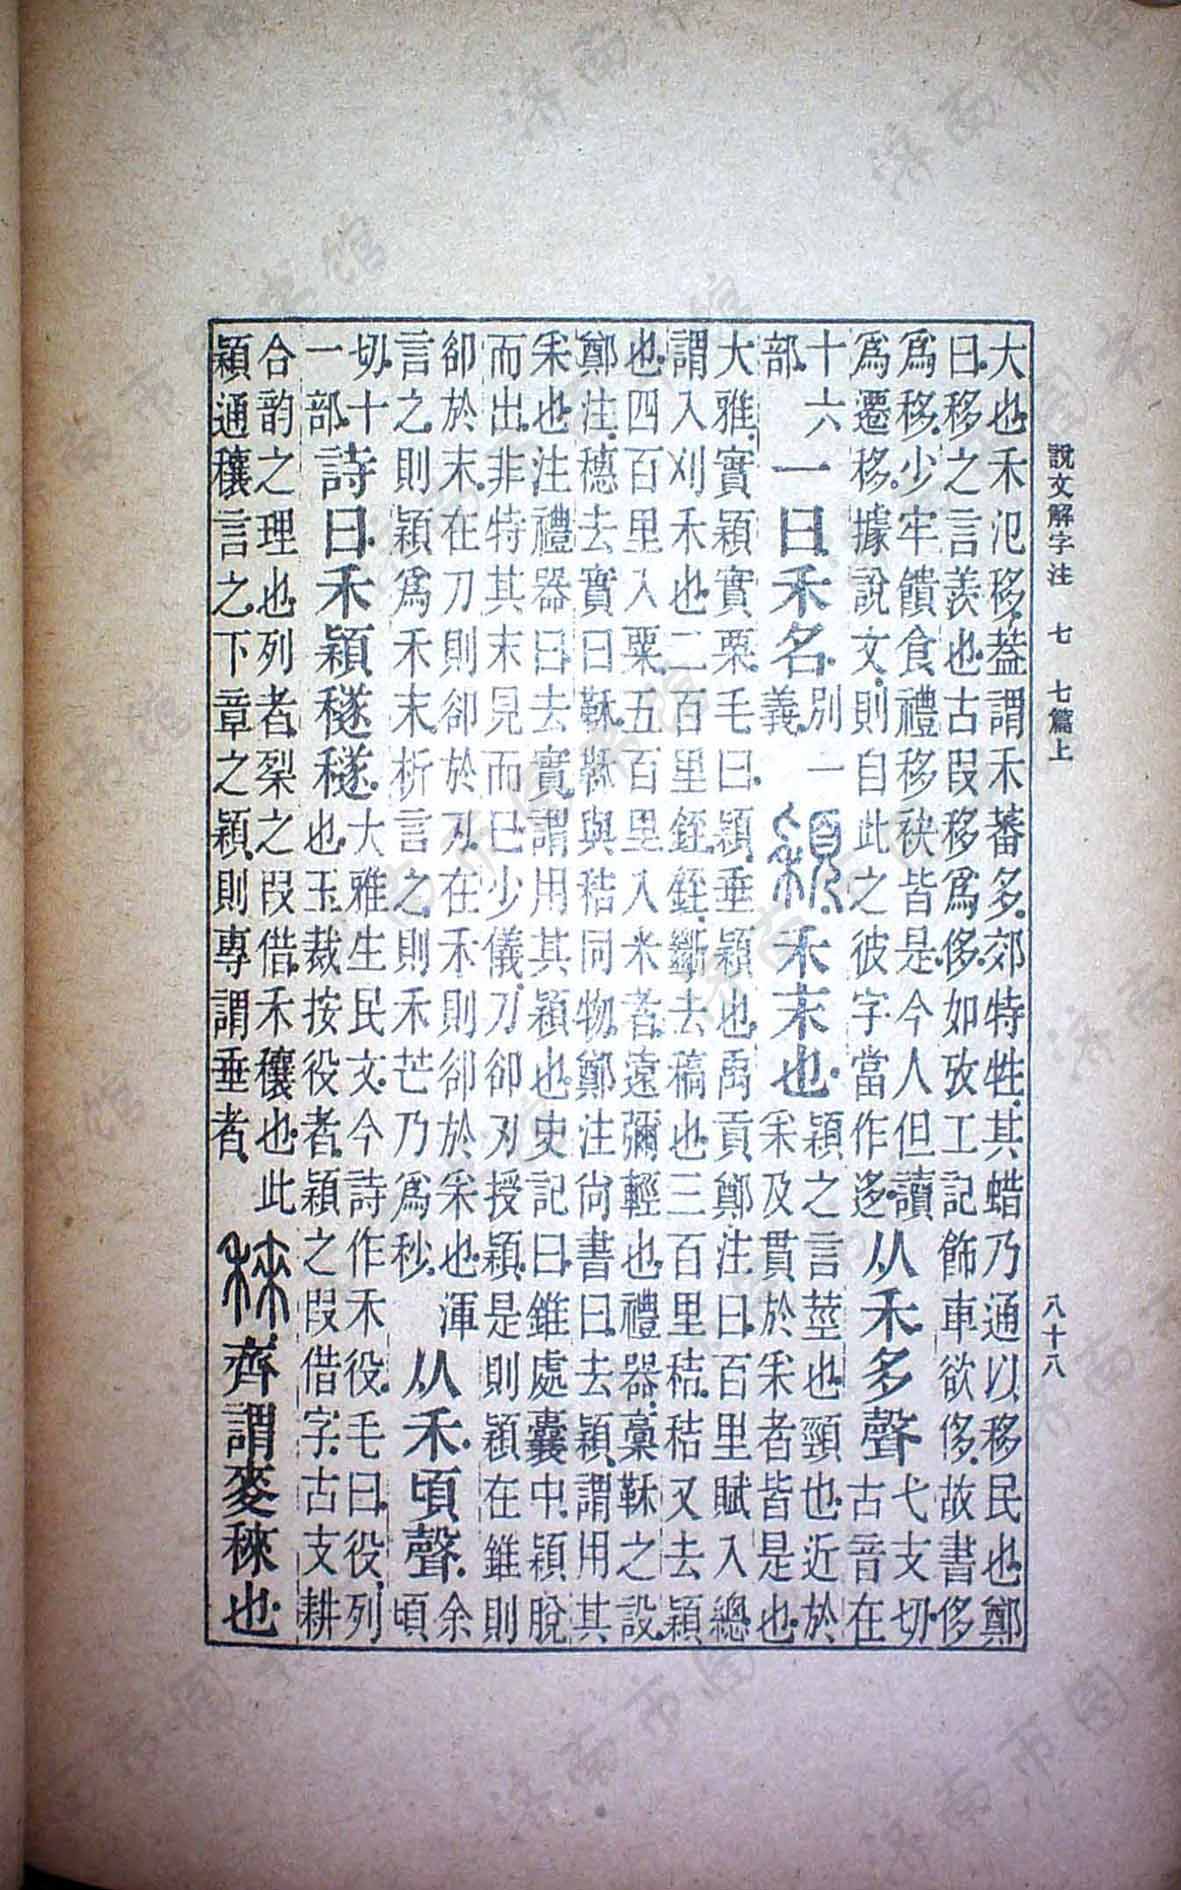 說文解字注 七 七篇上 八十八
大也禾氾移蓋謂禾蕃多郊特牲其蜡乃通以移民也鄭
曰移之言羨也古叚移爲侈如攷工記飾車欲侈故書侈
爲移少牢饋食禮移袂皆是今人但讀
爲遷移據說文則自此之彼字當作迻
从禾多聲
弋支切
古音在
十六
部
一曰禾名
別一
義
穎禾末也
穎之言莖也頸也近於
采及貫於采者皆是也
大雅實穎實栗毛曰穎垂穎也禹貢鄭注曰百里賦入緫
謂入刈禾也二百里銍銍斷去稿也三百里秸秸又去穎
也四百里入粟五百里入米者遠彌輕也禮器槀鞂之設
鄭注穗去實曰鞂鞂與秸同物鄭注尙書曰去穎謂用其
采也注禮器曰去實謂用其穎也史記曰錐處囊中穎脫
而出非特其末見而已少儀刀卻刃授穎是則穎在錐則
卻於末在刀則卻於刃在禾則卻於采也渾
言之則穎爲禾末析言之則禾芒乃爲秒
从禾頃聲
余
頃
切十
一部
詩曰禾穎穟穟
大雅生民文今詩作禾役毛曰役列
也玉裁按役者穎之叚借字古支耕
合韵之理也列者䅀之叚借禾穰也此
穎通穰言之下章之穎則專謂垂者
䅘齊謂麥䅘也